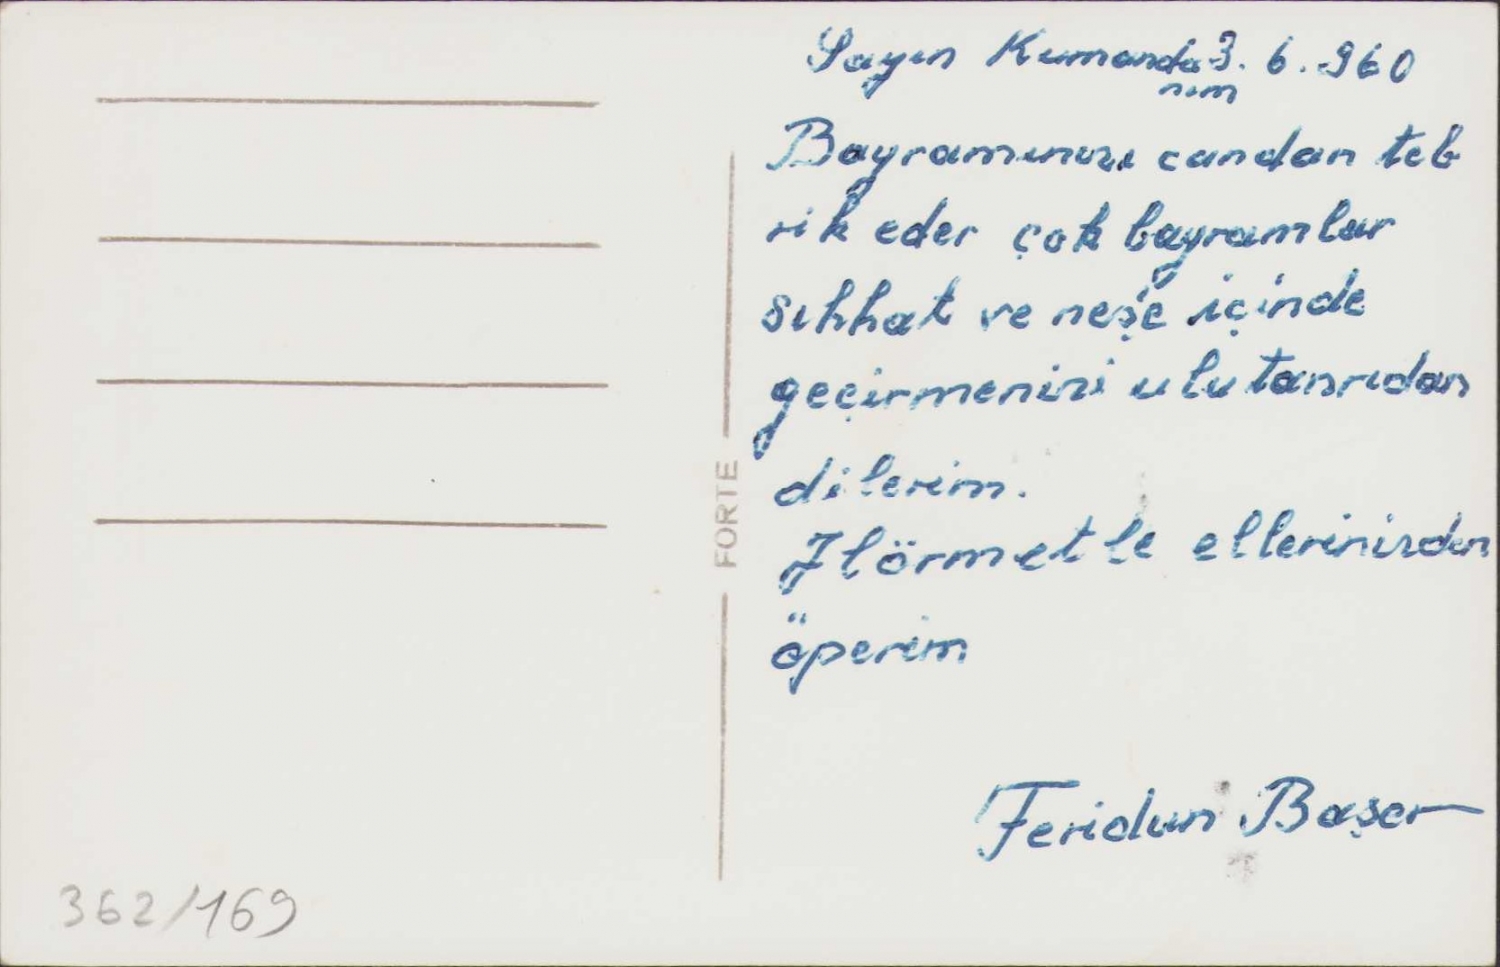 Sayın Kumanda 3.6.960
nım
Bayramınızı candan teb
rik eder çok bayramlar
sıhhat ve neşe içinde
geçirmenizi ulu tanrıdan
dilerim.
Hörmetle ellerinizden
öperim
Feridun Başer
FORTE
362/169